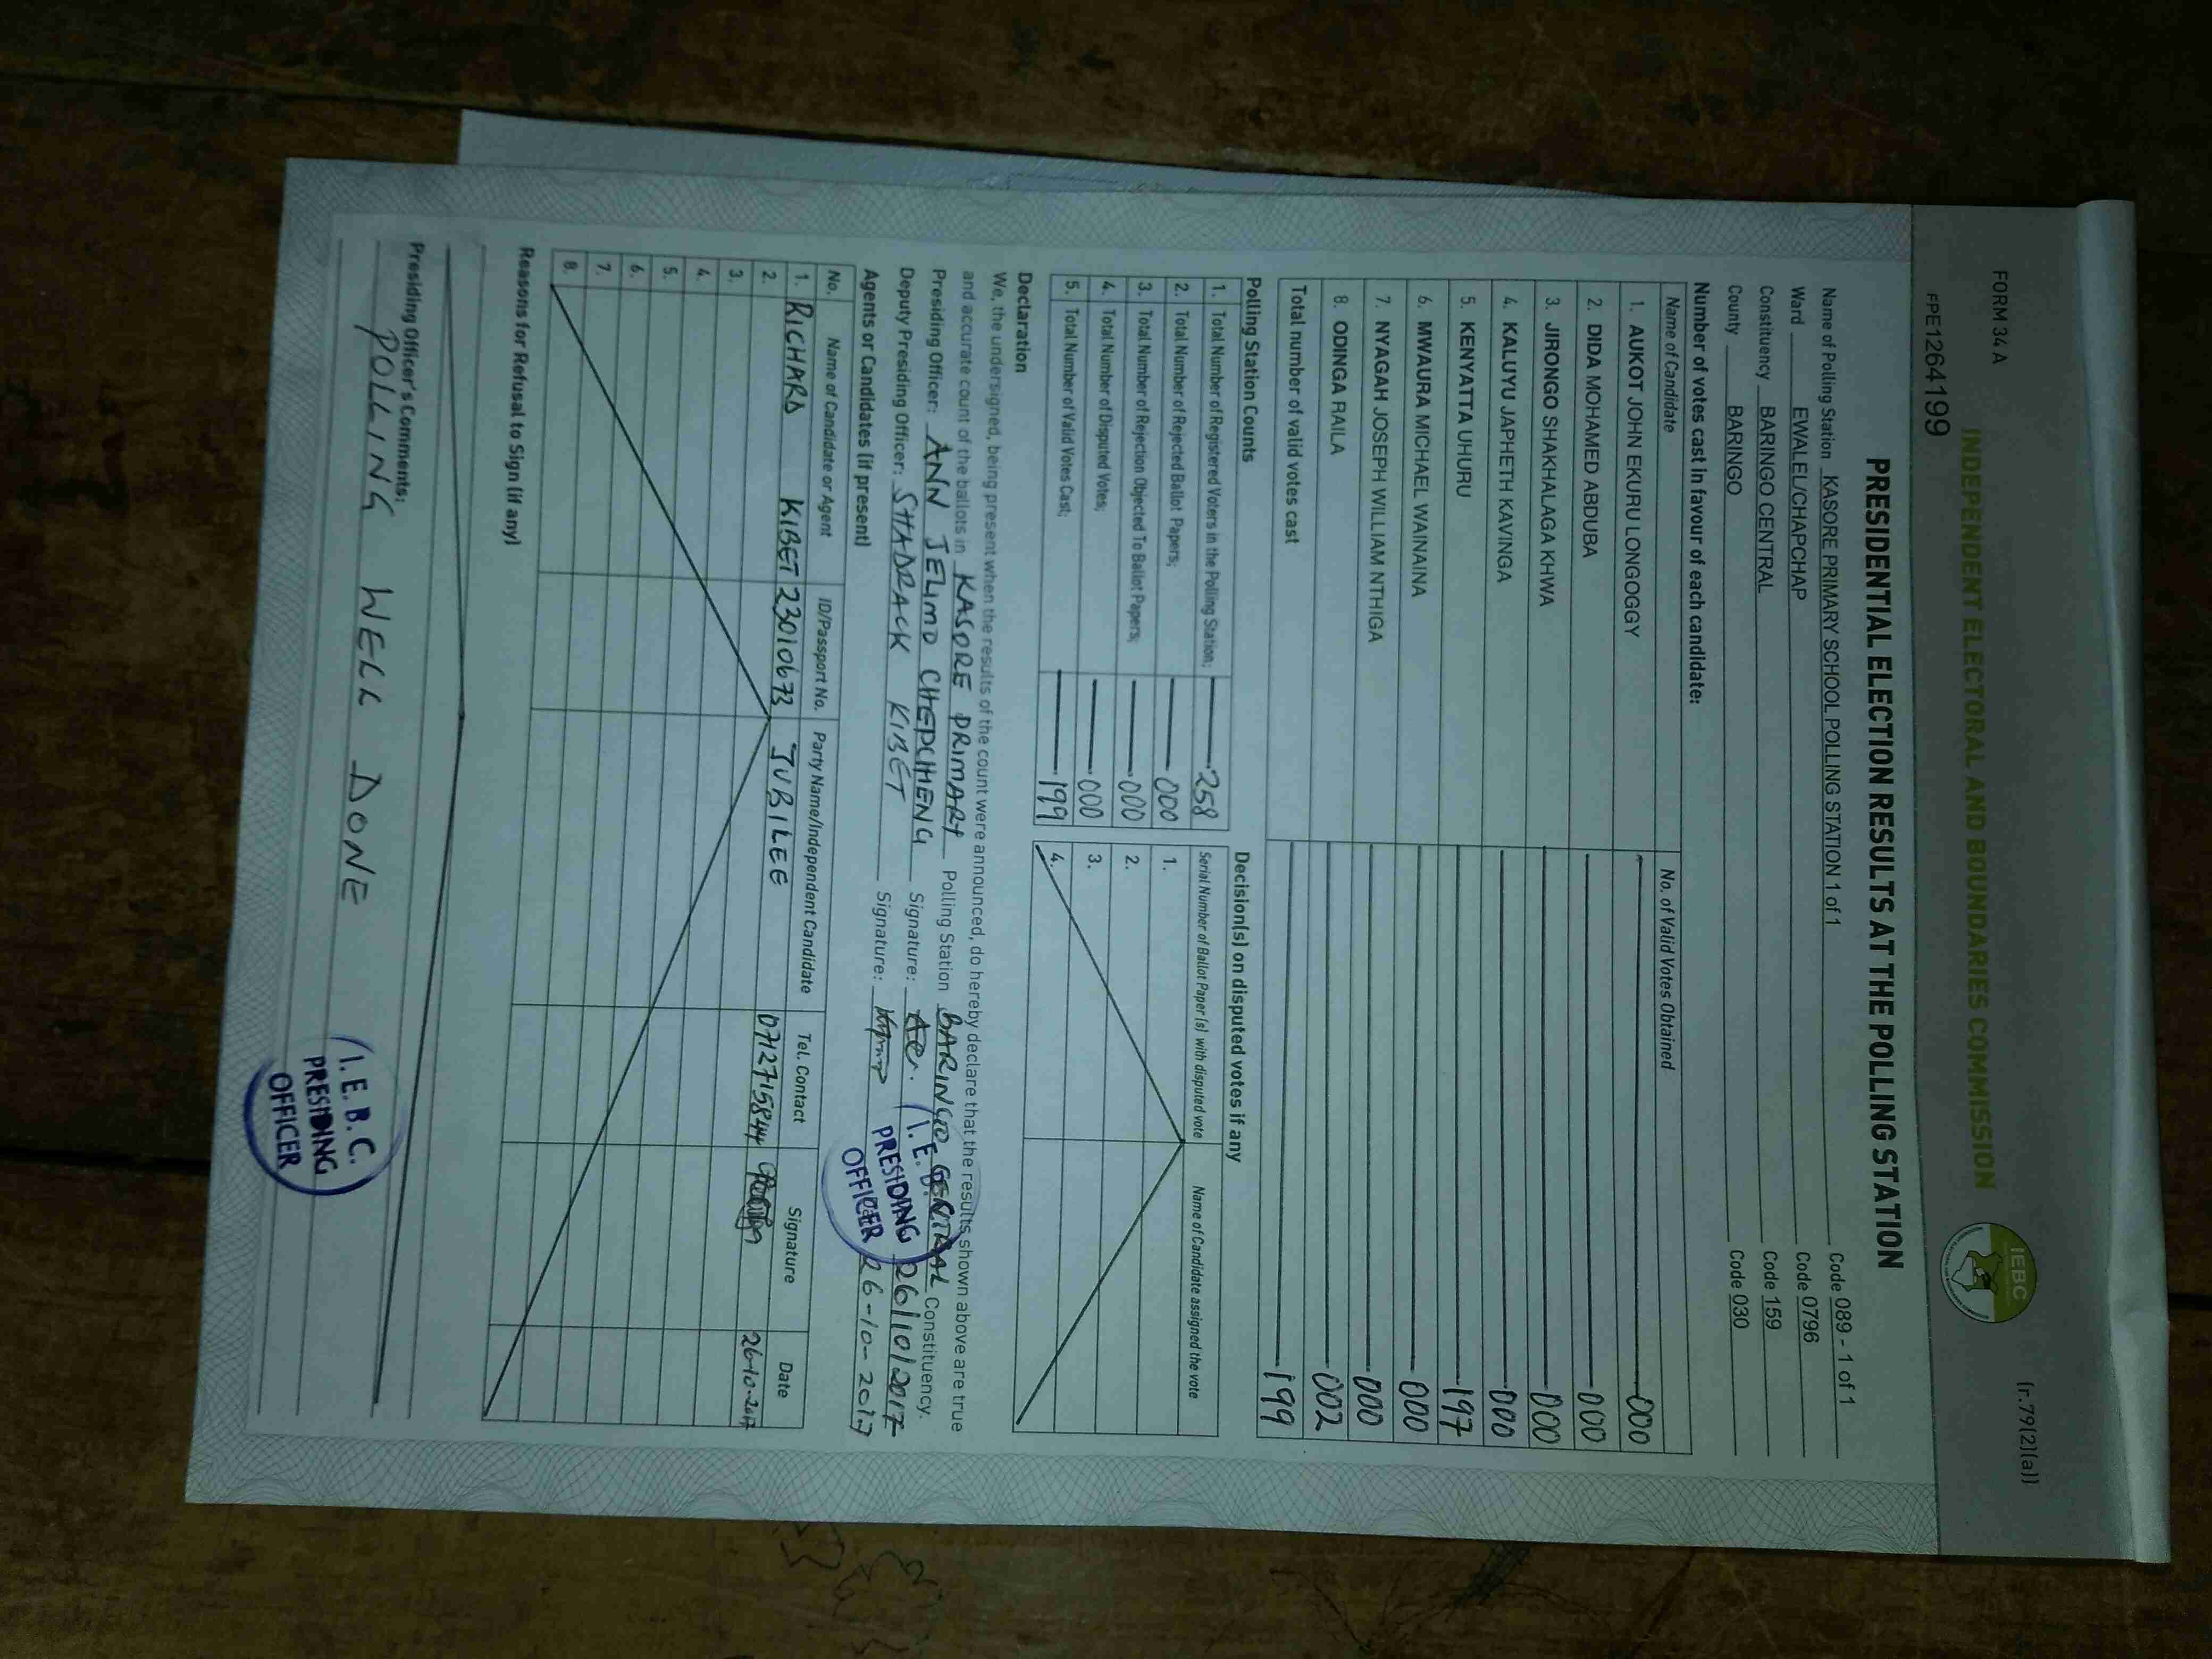 FORM 34 A
(r.79(2)(a))
INDEPENDENT ELECTORAL AND BOUNDARIES COMMISSION
IEBC
FPE1264199
PRESIDENTIAL ELECTION RESULTS AT THE POLLING STATION
Name of Polling Station KASORE PRIMARY SCHOOL POLLING STATION 1 of 1 Code 089 - 1 of 1
Ward EWALEL/CHAPCHAP Code 0796
Constituency BARINGO CENTRAL Code 159
County BARINGO Code 030
Number of votes cast in favour of each candidate:
Name of Candidate No. of Valid Votes Obtained
1. AUKOT JOHN EKURU LONGOGGY 000
2. DIDA MOHAMED ABDUBA 000
3. JIRONGO SHAKHALAGA KHWA 000
4. KALUYU JAPHETH KAVINGA 000
5. KENYATTA UHURU 197
6. MWAURA MICHAEL WAINAINA 000
7. NYAGAH JOSEPH WILLIAM NTHIGA 000
8. ODINGA RAILA 002
Total number of valid votes cast 199
Polling Station Counts
1. Total Number of Registered Voters in the Polling Station; 258
2. Total Number of Rejected Ballot Papers; 000
3. Total Number of Rejection Objected To Ballot Papers; 000
4. Total Number of Disputed Votes; 000
5. Total Number of Valid Votes Cast; 199
Decision(s) on disputed votes if any
Serial Number of Ballot Paper (s) with disputed vote Name of Candidate assigned the vote
1.
2.
3.
4.
Declaration
We, the undersigned, being present when the results of the count were announced, do hereby declare that the results shown above are true
and accurate count of the ballots in KASORE PRIMARY Polling Station BARINGO CENTRAL Constituency.
Presiding Officer: ANN JELIMO CHEPCHIENG Signature: 26/10/2017
Deputy Presiding Officer: SHADRACK KIBET Signature: 26-10-2017
I.E.B.C.
PRESIDING
OFFICER
Agents or Candidates (if present)
No. Name of Candidate or Agent ID/Passport No. Party Name/Independent Candidate Tel. Contact Signature Date
1. RICHARD KIBET 23010673 JUBILEE 0712715844 26-10-2017
2.
3.
4.
5.
6.
7.
8.
Reasons for Refusal to Sign (if any)
Presiding Officer's Comments:
POLLING WELL DONE
I.E.B.C.
PRESIDING
OFFICER